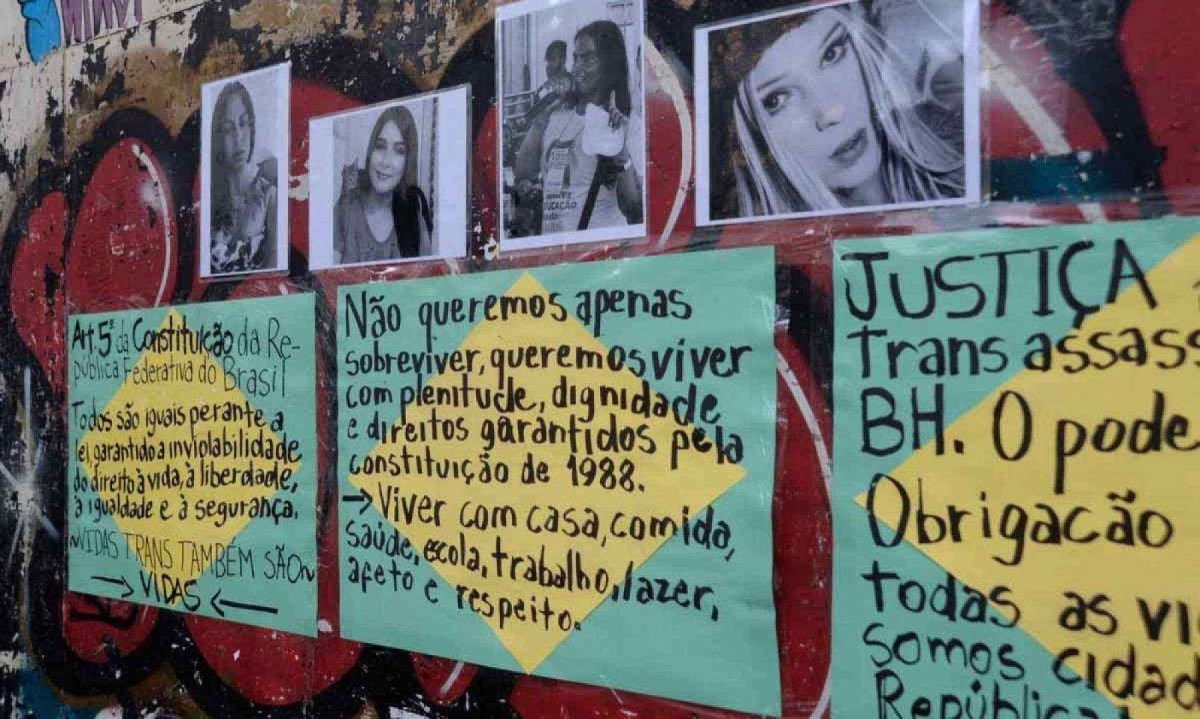 Art. 5º da Constituição da Re-
pública Federativa do Brasil
Todos são iguais perante a
lei, garantido a inviolabilidade
do direito à vida, à liberdade,
à igualdade e à segurança.
~VIDAS TRANS TAMBÉM SÃO~
→ VIDAS ←
Não queremos apenas
sobreviver, queremos viver
com plenitude, dignidade
e direitos garantidos pela
constituição de 1988.
→ Viver com casa, comida,
saúde, escola, trabalho, lazer,
afeto e respeito.
JUSTIÇA
Trans assass
BH. O pode
Obrigacão
todas as vi
somos cidad
República